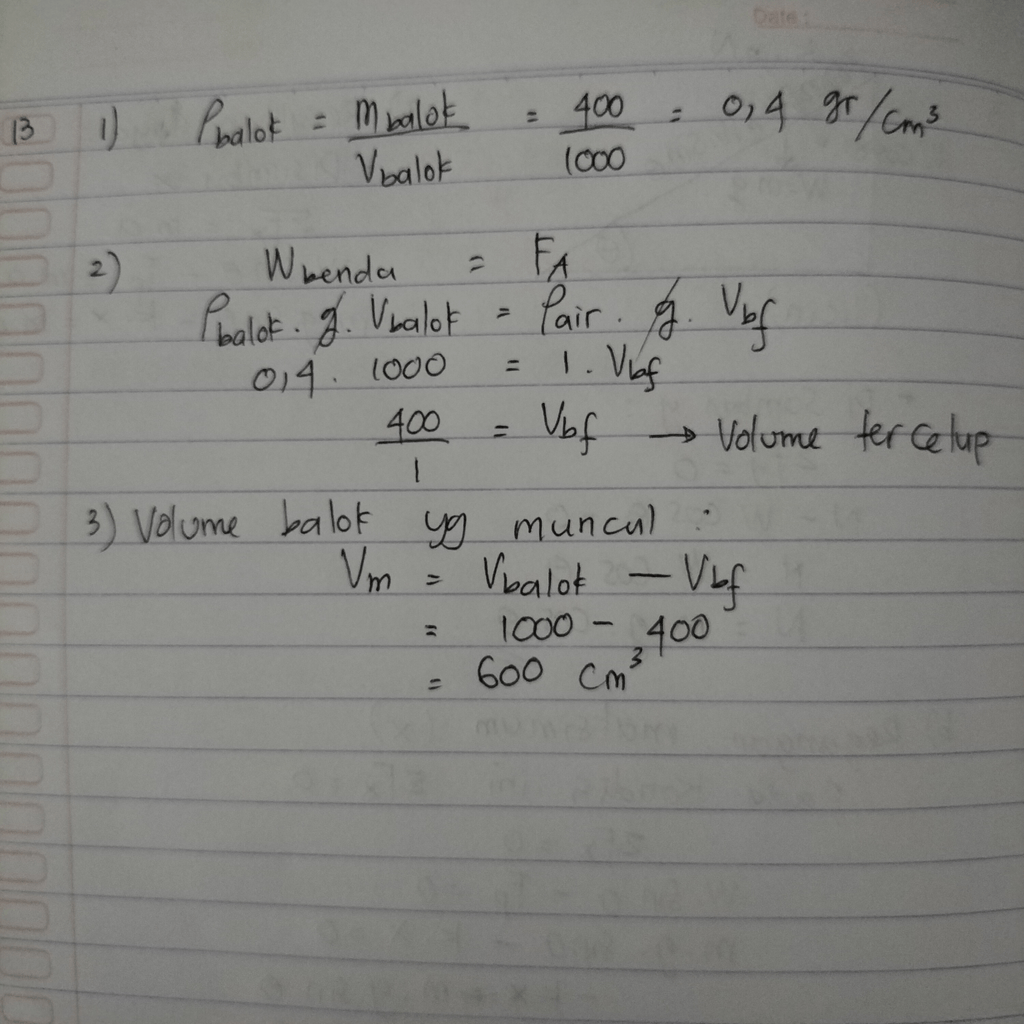 Date:
13 1) ρbalok = mbalok / Vbalok = 400 / 1000 = 0,4 gr/cm³
2) Wbenda = FA
ρbalok . g . Vbalok = ρair . g . Vbf
0,4 . 1000 = 1 . Vbf
400 / 1 = Vbf → Volume tercelup
3) Volume balok yg muncul :
Vm = Vbalok – Vbf
= 1000 – 400
= 600 cm³